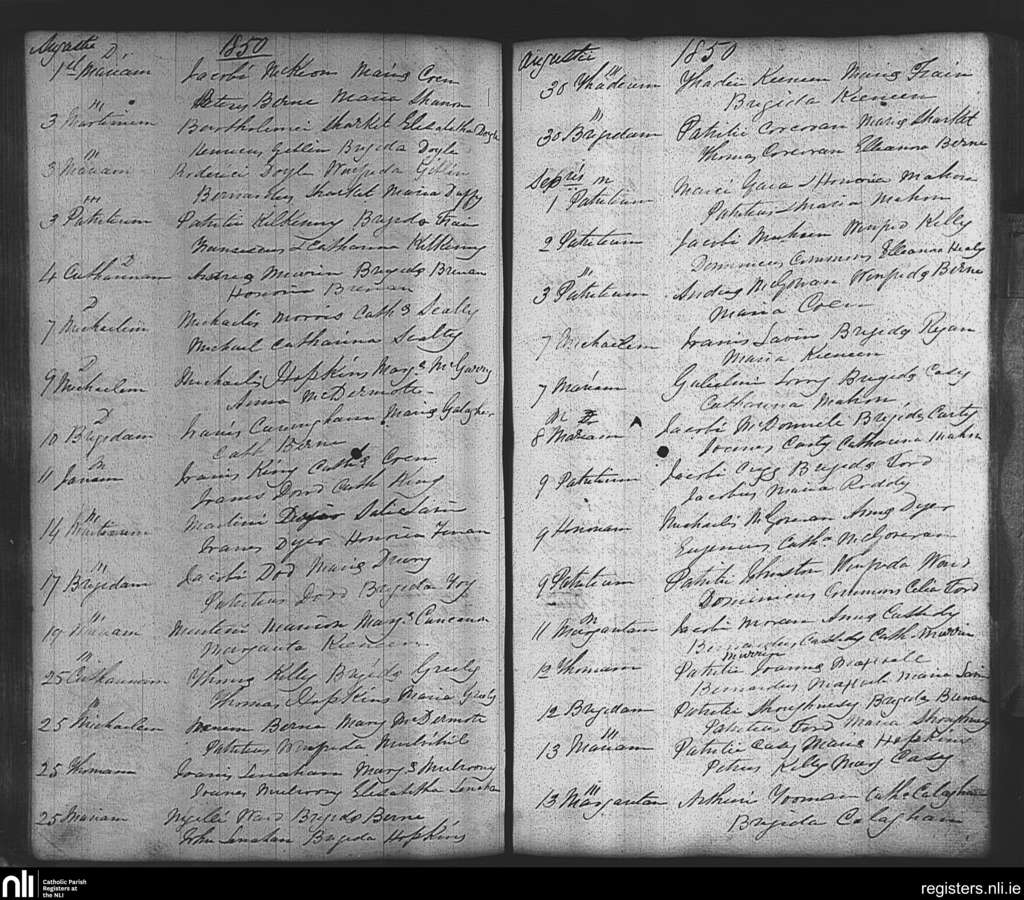 Augusti 1850
1st Mariam Jacobi McKeon Maria Coen
Peterus Berne Maria Shanon
3 Martinum Bartholimei Sharket Elisabetha Doyle
Gitlin Brigida Doyle
3 Mariam Roderici Doyle Winifrida Gitlin
Bernardus Sharket Maria Duffy
3 Patritium Patritii Kilkenny Brigida Frain
Franciscus & Catharina Kilkenny
4 Catharinam Andrea Brigida Brenan
Honoria Brenan
7 Michaelem Michaelis Morris Cath a Scally
Michael Catharina Scally
9 Michaelem Michaelis Hopkins Mary McGarry
Anna McDermote
10 Brigidam Joanis Cuningham Maria Galagher
Cath Berne
11 Janam Joanis King Cath a Coen
Joanes Dowd Cath King
14 Martini Savin
Joanes Dyer Honoria
17 Brigidam Jacobi Dod Maria Drury
Patritius Dodd Brigida Foy
19 Mariam Mary
Margarita Kieneen
25 Catharinam Thoma Kelly Brigida Greely
Thomas Hopkins Maria Greely
25 Michaelem Berne Mary McDermote
Patritius Winifrida Mulvihil
25 Thomam Joanis Lenaham Mary Mulroony
Joanes Mulroony Elisabetha Lenaham
25 Mariam Ward Brigida Berne
John Lenaham Brigida Hopkins
Augusti 1850
30 Thadeum Thadei Kieneen Maria Frain
Brigida Kieneen
30 Brigidam Patritii Corcoran Maria Sharket
Thomas Corcoran Elleanora Berne
Sepris
1 Patritium Gara & Honoria Mahon
Patritius & Maria Mahon
2 Patritium Jacobi Winifrid Kelly
Dominicus Commons Eleanora Healy
3 Patritium Andrea McGowan Winifrida Berne
Maria Coen
7 Michaelem Joanis Savin Brigida Regan
Maria Kieneen
7 Mariam Gulielmi Brigida Casy
Catharina Mahon
8 Mariam Jacobi McDonnele Brigida Carty
Joanes Carty Catharina Mahon
9 Patritium Jacobi Brigida Ford
Jacobus Maria Roddy
9 Honoriam Michaelis McGowran Anna Dyer
Eugenius Cath a McGowran
9 Patritium Patritii Johnston Winifrida Ward
Dominicus Commons Celia Ford
11 Margaritam Jacobi Anna Cassedy
Cassedy Cath
12 Thomam Patritii Joanna
Bernardus Maria Savin
12 Brigidam Patritii Shoughnesy Brigida Brenan
Patritius Ford Maria Shoughnesy
13 Mariam Patritii Casy Maria Hopkins
Petrus Kelly Mary Casey
13 Margaritam Arthuri Noonan Cath a Calagham
Brigida Calagham
nli
Catholic Parish
Registers at
the NLI
registers.nli.ie